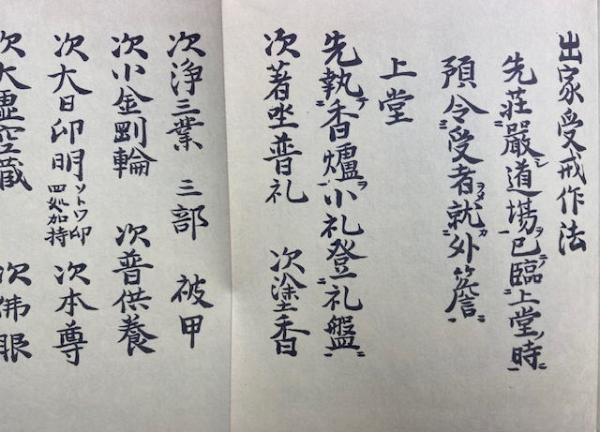 出家受戒作法
先莊嚴道場已臨上堂時
預令受者就外簷
上堂
先執香爐小礼登礼盤
次著坐普礼　次塗香
次浄三業　三部　被甲
次小金剛輪　次普供養
次大日印明ソトワ印四処加持　次本尊
次大虚空蔵　次佛眼